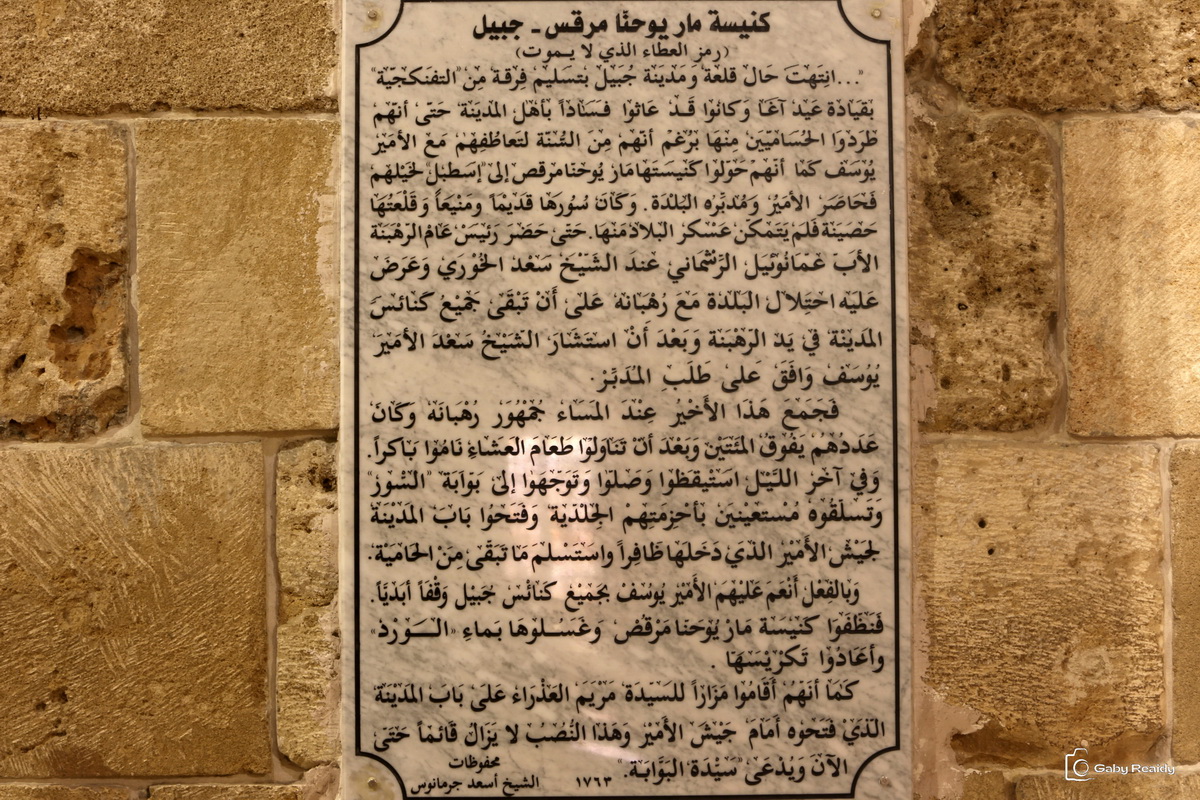 كنيسة مار يوحنّا مرقس ـ جبيل
(رمز العطاء الذي لا يـموت)
"...انتهَت حَال قلعَة وَمَدينَة جُبَيل بتَسليم فِرقَة مِن "التفنكجيَة"
بقيادَة عَيد آغَا وَكانوُا قَـد عَاثوا فسَاداً بأهل المدَينَة حَتى أنهم
طرَدوُا الحُسَاميّين مِنهَا برُغم أنهُم مِن السُّنة لتَعاطُفِهِم مَع الأميْر
يُوسَف كَمَا أنهُم حَوّلوا كَنيسَتَها مَار يُوحَنا مرقص إلى "إسطبل" لخَيْلهم
فَحَاصَرَ الأمَيْر وَمُدبّره البَلدَة. وَكَان سُورهَا قَديمًا وَمَنيْعَاً وَقَلْعَتُهَا
حَصيَنة فَلم يَتَمْكن عَسْكر البلاد منهَا. حَتى حَضَر رَئيسْ عَام الرّهْبَنة
الأبَ عَمانُوئيل الرّشمَاني عَندَ الشّيَخ سَعْد الخوُري وَعَرَضَ
عَليه احتِلال البَلدَة مَعَ رُهْبَانه عَلى أَنْ تَبْقَى جَميْع كَنائسَ
المَديْنَة في يَد الرّهبَنة وَبَعْد أَنْ استشَارَ الشّيْخُ سَعْدَ الأمَيَرَ
يُوُسَفْ وَافَق عَلى طَلَبِ المُدَبِّرْ.
فَجَمَع هَذا الأَخيْرُ عِنْدَ المسَاء جُمْهُور رُهْبَانَه وَكَانَ
عَدَدُهُم يَفُوق المئَتَيْن وَبَعْدَ أن تَنَاولوُا طَعَامَ العَشاءِ نَامُوا بَاكراً.
وَفي آخر اللَيْل استَيقَظوُا وَصَلّوا وَتَوَجّهَوا إلىَ بَوّابَة "السُّوْر"
وَتَسلّقوُه مُستَعينين بأحْزمَتِهِمْ الجِلْديَة وَفَتَحُوا بَاب المَديْنَة
لجَيش الأمَيْر الذي دَخَلهَا ظَافِراً واستَسْلم مَا تَبَقّى مِن الحَاميَة.
وَبالفِعْل أَنْعَمَ عَليْهم الأمَيْر يُوسَفْ بجَميْع كَنائسْ جُبَيل وَقْفَاً أبَديًا.
فَنَظّفوَا كَنيسَة مَار يُوحَنا مَرْقصْ وَغَسَـلوُهَا بَماءِ "الـوَرْد"
وَأعَادُوا تَكرْيْسَهَا .
كَمَا أنَهُمْ أقَامُوا مَزَاراً للسَيدَة مَرْيَم العَذْرَاء عَلىَ بَابَ المَديْنَة
الذَيْ فَتَحوه أمَامَ جَيْش الأمَيْر وَهَذَا النُصْبُ لا يَزَالُ قَائماً حَتىَ
الآن وَيُدْعَى "سَيّدَة البَوّابَة."
محفوظات
الشيخ أسعد جرمانوس ١٧٦٣
Gaby Reaidy